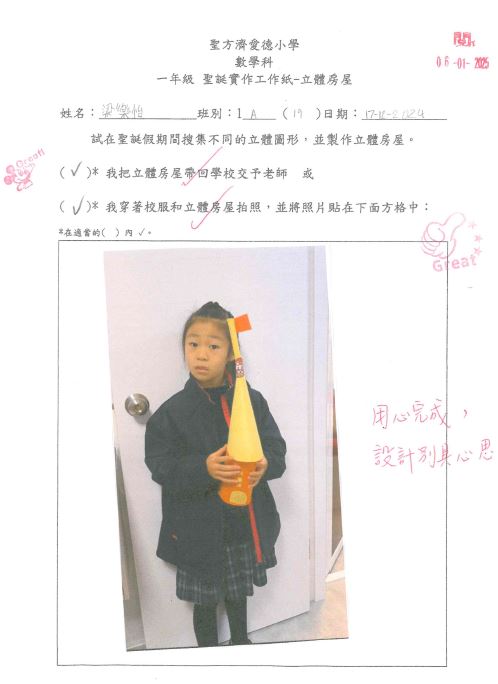 聖方濟愛德小學
數學科
一年級 聖誕實作工作紙-立體房屋
06-01-2025
姓名：梁樂怡 班別：1 A ( 19 )日期：17-12-2024
試在聖誕假期間搜集不同的立體圖形，並製作立體房屋。
Great!
( ✓ )* 我把立體房屋帶回學校交予老師 或
( ✓ )* 我穿著校服和立體房屋拍照，並將照片貼在下面方格中：
*在適當的( ) 內 ✓。
Great
用心完成，
設計別具心思